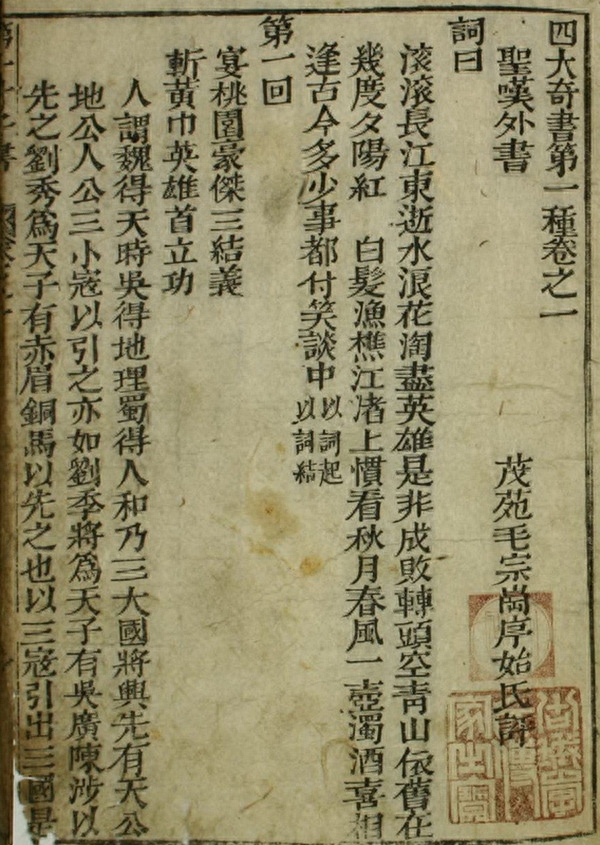 四大奇書第一種卷之一
聖嘆外書　茂苑毛宗崗序始氏評
詞曰
滾滾長江東逝水浪花淘盡英雄是非成敗轉頭空青山依舊在
幾度夕陽紅　白髮漁樵江渚上慣看秋月春風一壺濁酒喜相
逢古今多少事都付笑談中以詞起以詞結
第一回
宴桃園豪傑三結義
斬黃巾英雄首立功
人謂魏得天時吳得地理蜀得人和乃三大國將興先有天公
地公人公三小寇以引之亦如劉季將爲天子有吳廣陳涉以
先之劉秀爲天子有赤眉銅馬以先之也以三寇引出三國是